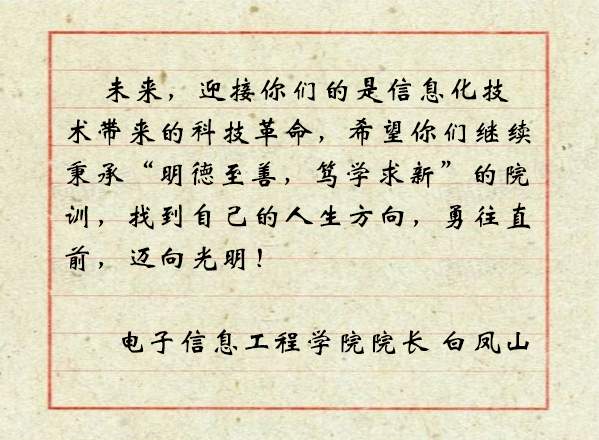 未来，迎接你们的是信息化技
术带来的科技革命，希望你们继续
秉承“明德至善，笃学求新”的院
训，找到自己的人生方向，勇往直
前，迈向光明！
电子信息工程学院院长 白凤山